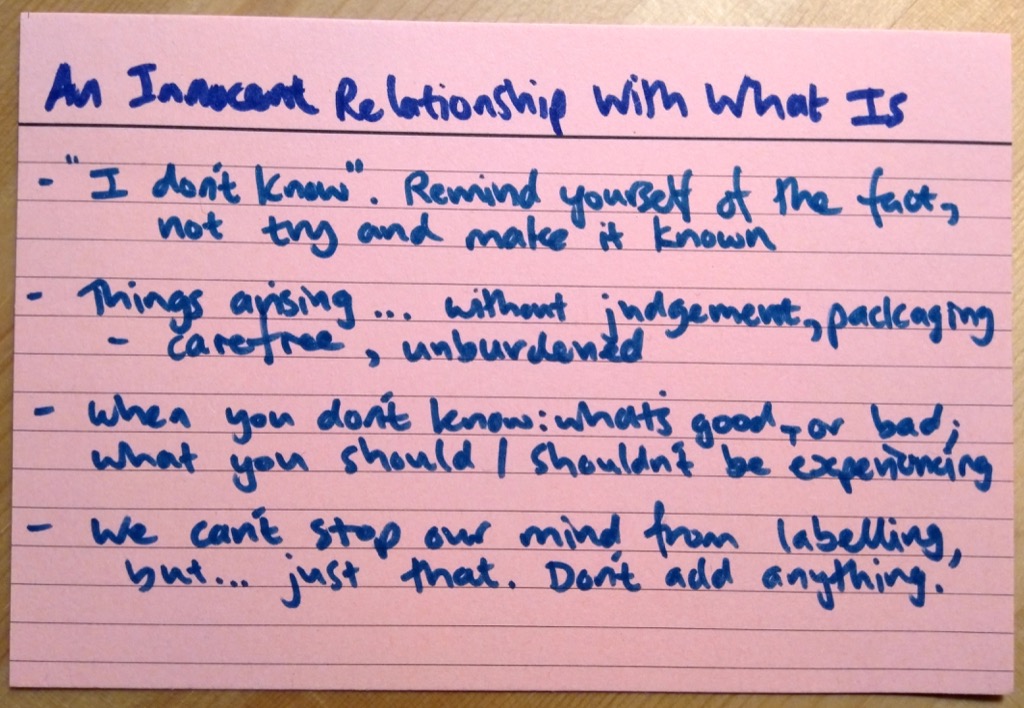 An Innocent Relationship With What Is
- "I don't know". Remind yourself of the fact,
not try and make it known
- Things arising... without judgement, packaging
- carefree, unburdened
- when you don't know: what's good, or bad;
what you should / shouldn't be experiencing
- We can't stop our mind from labelling,
but... just that. Don't add anything.